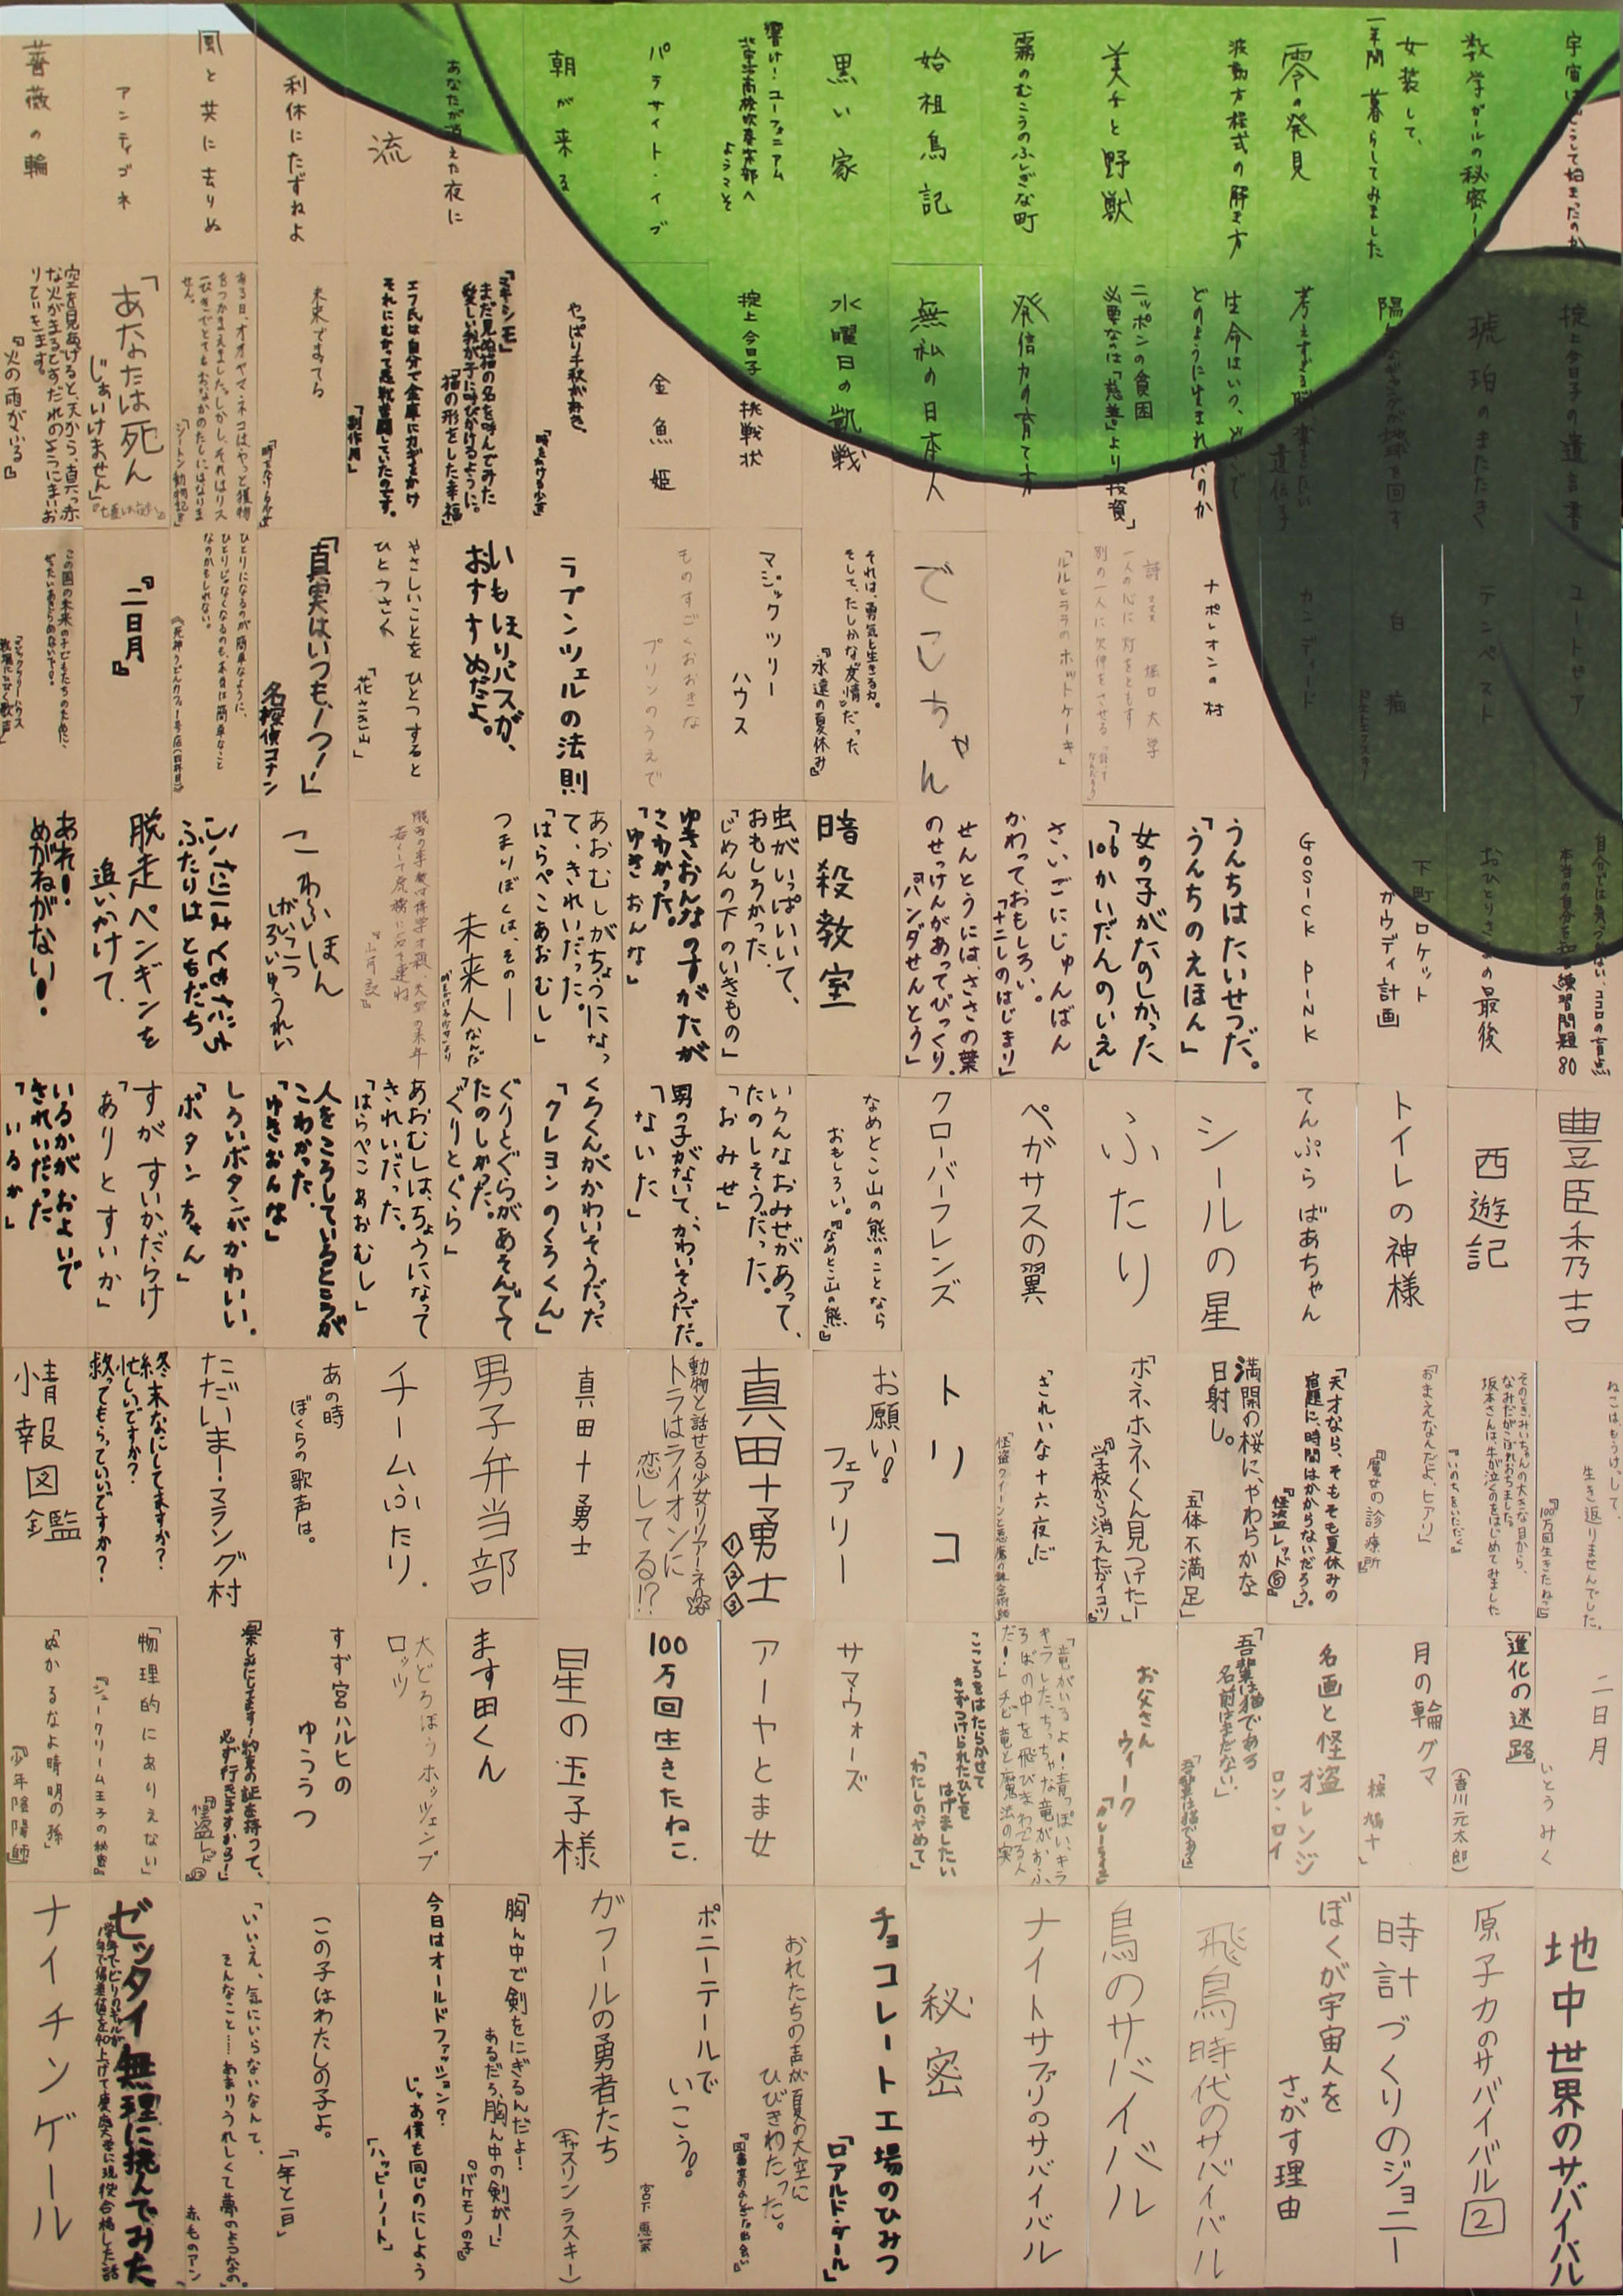 宇宙はどうして始まったのか
数学ガールの秘密ノ
女装して、
一年間暮らしてみました
零の発見
波動方程式の解き方
美女と野獣
霧のむこうのふしぎな町
始祖鳥記
黒い家
響け!ユーフォニアム
北宇治高校吹奏楽部へ
ようこそ
パラサイト・イブ
朝が来る
あなたが消えた夜に
流
利休にたずねよ
風と共に去りぬ
アンティゴネ
薔薇の輪
掟上今日子の遺言書
琥珀のまたたき
陽気なギャングが地球を回す
生命はいつ、どこで
どのように生まれたのか
ニッポンの貧困
必要なのは「慈善」より「投資」
発信力の育て方
無私の日本人
水曜日の凱戦
掟上今日子 挑戦状
金魚姫
やっぱり千秋が好き。
「時をかける少女」
『ミキシモ』
まだ見ぬ猫の名を呼んでみた
愛しい我が子に呼びかけるように。
「猫の形をした幸福」
エフ氏は自分で金庫にカギをかけ
それにむかって悪戦苦闘していたのです。
「副作用」
未来でまってら
「時をかける少女」
ある日、オオヤマネコはやっと獲物
をつかまえました。しかし、それはリス
一ぴきでとてもおなかのたしにはなりま
せん。
「シートン動物記」
「あなたは死ん
じゃいけません」
空を見あげると、天から、真っ赤
な火がまるですだれのようにまいお
りていきます。
『火の雨がふる』
ユートピア
テンペスト
白痴
ドストエフスキー
カンディード
ナポレオンの村
詩 堀口大学
一人の心に灯をともす
別の一人に欠伸をさせる
「ルルとララのホットケーキ」
でこちゃん
それは、勇気と生きる力。
そして、たしかな『友情』だった
『永遠の夏休み』
マジックツリー
ハウス
ものすごくおおきな
プリンのうえで
ラプンツェルの法則
いもほりバスが、
おすすめだよ。
やさしいことをひとつすると
ひとつさく
「花さき山」
「真実はいつも1つ!」
名探偵コナン
ひとりになるのが簡単なように、
ひとりじゃなくなるのも、本当は簡単なこと
なのかもしれない。
『二日月』
この国の未来の子どもたちのために
ぜったいあきらめないで!
自分では気づかない、ココロの盲点
本当の自分を知る練習問題80
おひとりさまの最後
下町ロケット
ガウディ計画
GOSICK PINK
うんちはたいせつだ。
「うんちのえほん」
女の子がたのしかった
「106かいだんのいえ」
さいごにじゅんばん
かわっておもしろい。
「十二しのはじまり」
せんとうには、ささの葉
のせっけんがあってびっくり。
「パンダせんとう」
暗殺教室
虫がいっぱいいて、
おもしろかった。
「じめんの下のいきもの」
ゆきおんなの子がたが
こわかった。
「ゆきおんな」
あおむしがちょうになっ
て、きれいだった。
「はらぺこあおむし」
つまりぼくは、その―
未来人なんだ
隴西の李徴は博学才穎、天宝の末年
若くして虎榜に名を連ね
『山月記』
こわいほん
がいこつ
しろいゆうれい
ふたりはともだち
脱走ペンギンを
追いかけて、
あれ!
めがねがない!
豊臣秀吉
西遊記
トイレの神様
てんぷらばあちゃん
シールの星
ふたり
ペガサスの翼
クローバーフレンズ
なめとこ山の熊のことなら
おもしろい。『なめとこ山の熊』
いろんなおみせがあって、
たのしそうだった。
「おみせ」
男の子がないて、かわいそうだだ。
「ないた」
くろくんがかわいそうだった
「クレヨンのくろくん」
ぐりとぐらがあそんでて
たのしかった。
「ぐりとぐら」
あおむしは、ちょうになって
きれいだった。
「はらぺこあおむし」
人をころしているところが
こわかった。
「ゆきおんな」
しろいボタンがかわいい。
「ボタンちゃん」
すがすいかだらけ
「ありとすいか」
いるかがおよいで
きれいだった
「いるか」
ねこはもう、けして、
生き返りませんでした。
『100万回生きたねこ』
そのときみいちゃんの大きな目から、
なみだがこぼれおちました。
坂本さんは、牛が泣くのをはじめてみました
『いのちをいただく』
「おまえなんだよ、ヒアリ」
『魔女の診療所』
「天才なら、そもそも夏休みの
宿題に、時間はかからないだろう。」
『怪盗レッド⑧』
満開の桜に、やわらかな
日射し。
「五体不満足」
「ホネホネくん見つけたー」
『学校から消えたガイコツ』
「きれいな十六夜だ」
『怪盗クイーンと悪魔の錬金術師』
トリコ
お願い!
フェアリー
真田十勇士
①②③
動物と話せる少女リリアーネ
トラはライオンに
恋してる!?
真田十勇士
男子弁当部
チームふたり.
あの時
ぼくらの歌声は。
ただいま!マラング村
終末なにしてますか?
忙しいですか?
救ってもらっていいですか?
情報図鑑
二日月
いとうみく
[進化の迷路]
(香川元太郎)
月の輪グマ
「椋鳩十」
名画と怪盗
オレンジ
ロン・ロイ
「吾輩は猫である
名前はまだない。」
「吾輩は猫である」
お父さん
ウィーク
『カレーライス』
「竜がいるよ!青っぽい、キラ
キラした、ちっちゃな竜が、おふ
ろばの中を飛びまわってる
だ!」チビ竜と魔法の実
こころをはたらかせて
きずつけられたひとを
はげましたい
「わたしのやめて」
サマーウォーズ
アーヤとま女
100万回生きたねこ
星の玉子様
ます田くん
大どろぼうホッツェンプ
ロッツ
すず宮ハルヒの
ゆううつ
「楽しみにしてます!約束の証を持って、
必ず行きますから!」
『怪盗レッド⑫』
「物理的にありえない」
『シュークリーム王子の秘密』
「ぬかるなよ晴明の孫」
『少年陰陽師』
地中世界のサバイバル
原子力のサバイバル2
時計づくりのジョニー
ぼくが宇宙人を
さがす理由
飛鳥時代のサバイバル
鳥のサバイバル
ナイトサファリのサバイバル
秘密
チョコレート工場のひみつ
「ロアルド・ダール」
おれたちの声が夏の大空に
ひびきわたった。
ポニーテールで
いこう!
宮下恵茉
ガフールの勇者たち
(キャスリンラスキー)
「胸ん中で剣をにぎるんだよ!
あるだろ、胸ん中の剣が!」
『バケモノの子』
今日はオールドファッション?
じゃあ僕も同じのにしよう
「ハッピーノート」
この子はわたしの子よ。
「一年と一日」
「いいえ、気にいらないなんて、
そんなこと……あまりうれしくて夢のようなの」
赤毛のアン
ゼッタイ無理に挑んでみた
ナイチンゲール